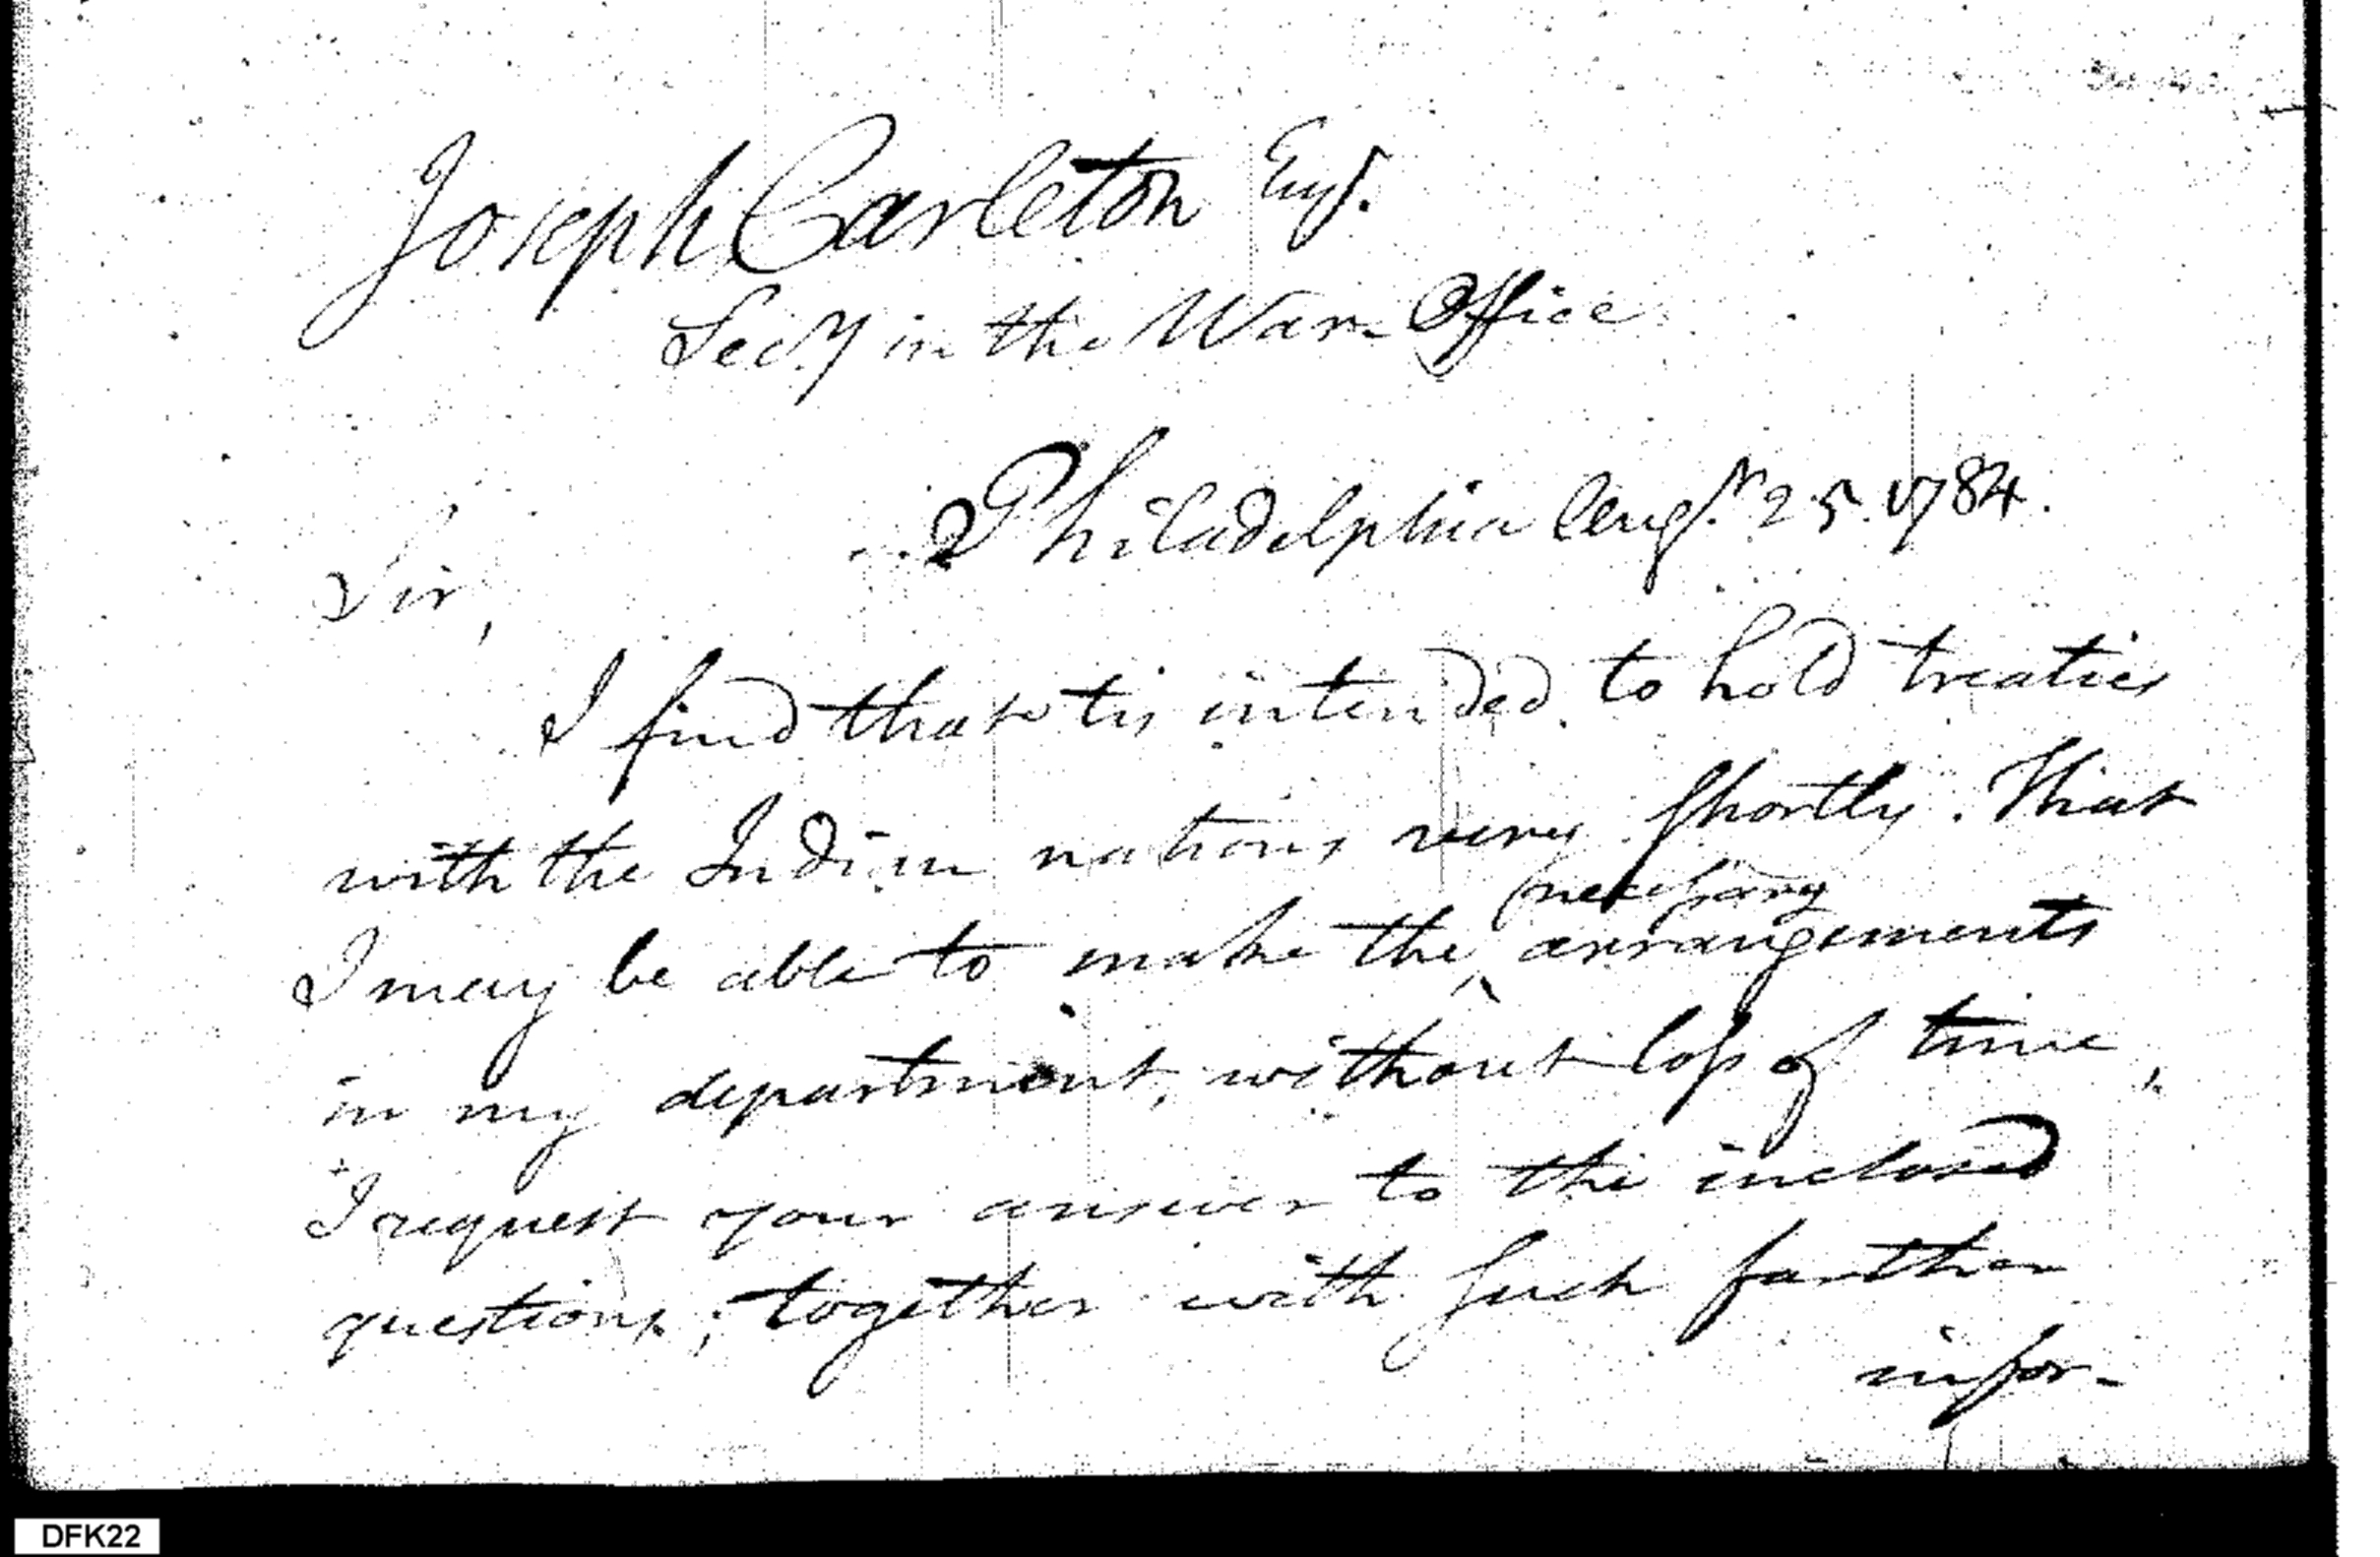 Joseph Carleton Esqr.
Secy in the War Office
Philadelphia Augt. 25. 1784.
Sir,
I find that tis intended to hold treaties
with the Indian nations very shortly. That
necessary
I may be able to make the ^ arrangements
in my department, without loss of time,
I request your answer to the inclosed
questions; together with such farther
infor-
DFK22